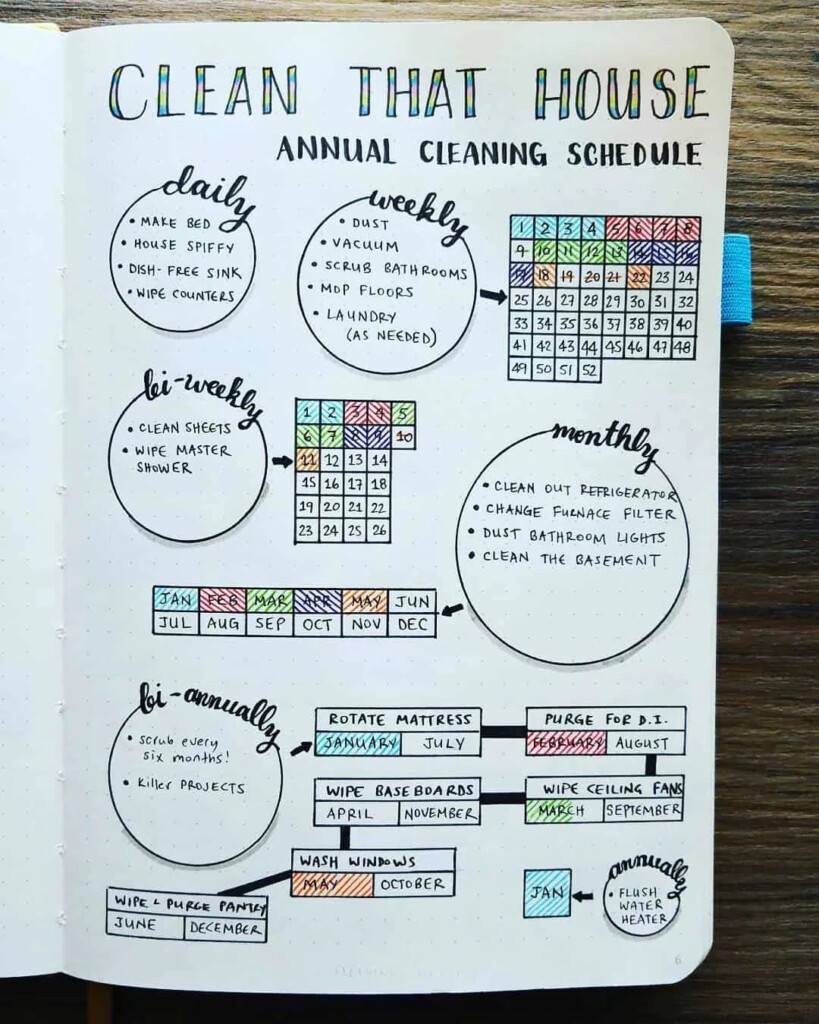 CLEAN THAT HOUSE
ANNUAL CLEANING SCHEDULE
daily
• MAKE BED
• HOUSE SPIFFY
• DISH-FREE SINK
• WIPE COUNTERS
weekly
• DUST
• VACUUM
• SCRUB BATHROOMS
• MOP FLOORS
• LAUNDRY
(AS NEEDED)
1 2 3 4 5 6 7 8
9 10 11 12 13 14 15 16
17 18 19 20 21 22 23 24
25 26 27 28 29 30 31 32
33 34 35 36 37 38 39 40
41 42 43 44 45 46 47 48
49 50 51 52
bi-weekly
• CLEAN SHEETS
• WIPE MASTER
SHOWER
1 2 3 4 5
6 7 8 9 10
11 12 13 14
15 16 17 18
19 20 21 22
23 24 25 26
monthly
• CLEAN OUT REFRIGERATOR
• CHANGE FURNACE FILTER
• DUST BATHROOM LIGHTS
• CLEAN THE BASEMENT
JAN FEB MAR APR MAY JUN
JUL AUG SEP OCT NOV DEC
bi-annually
• scrub every
six months!
• Killer PROJECTS
ROTATE MATTRESS
JANUARY JULY
PURGE FOR D.I.
FEBRUARY AUGUST
WIPE CEILING FANS
MARCH SEPTEMBER
WIPE BASEBOARDS
APRIL NOVEMBER
WASH WINDOWS
MAY OCTOBER
WIPE & PURGE PANTRY
JUNE DECEMBER
annually
• FLUSH
WATER
HEATER
JAN
6